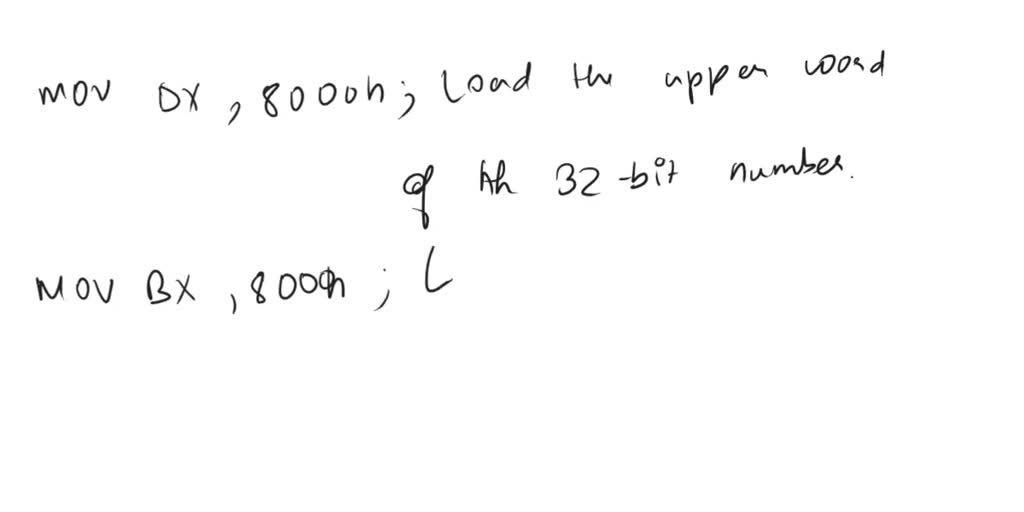 MOV DX, 8000h; Load the upper word
of th 32-bit number.
MOV BX, 8000h; L